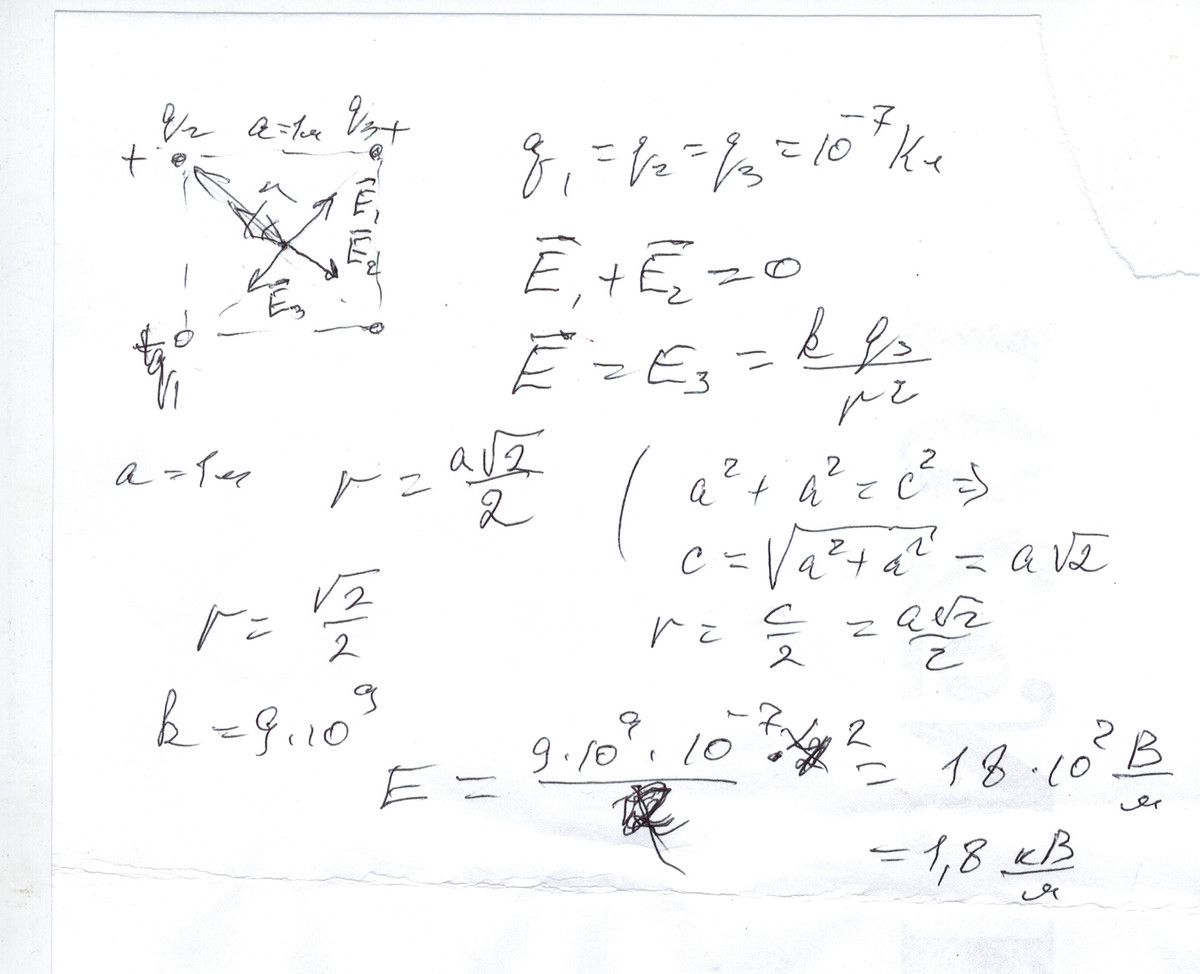 q₂ a=1м q₃+
+
E⃗₁
E⃗₂
E⃗₃
+q₁
q₁ = q₂ = q₃ = 10⁻⁷ Кл
E⃗₁ + E⃗₂ = 0
E⃗ = E₃ = k q₃ / r²
a = 1м r = a√2 / 2 ( a² + a² = c² ⇒
c = √(a² + a²) = a√2
r = √2 / 2 r = c / 2 = a√2 / 2
k = 9·10⁹
E = 9·10⁹·10⁻⁷·2 = 18·10² В/м
= 1,8 кВ/м